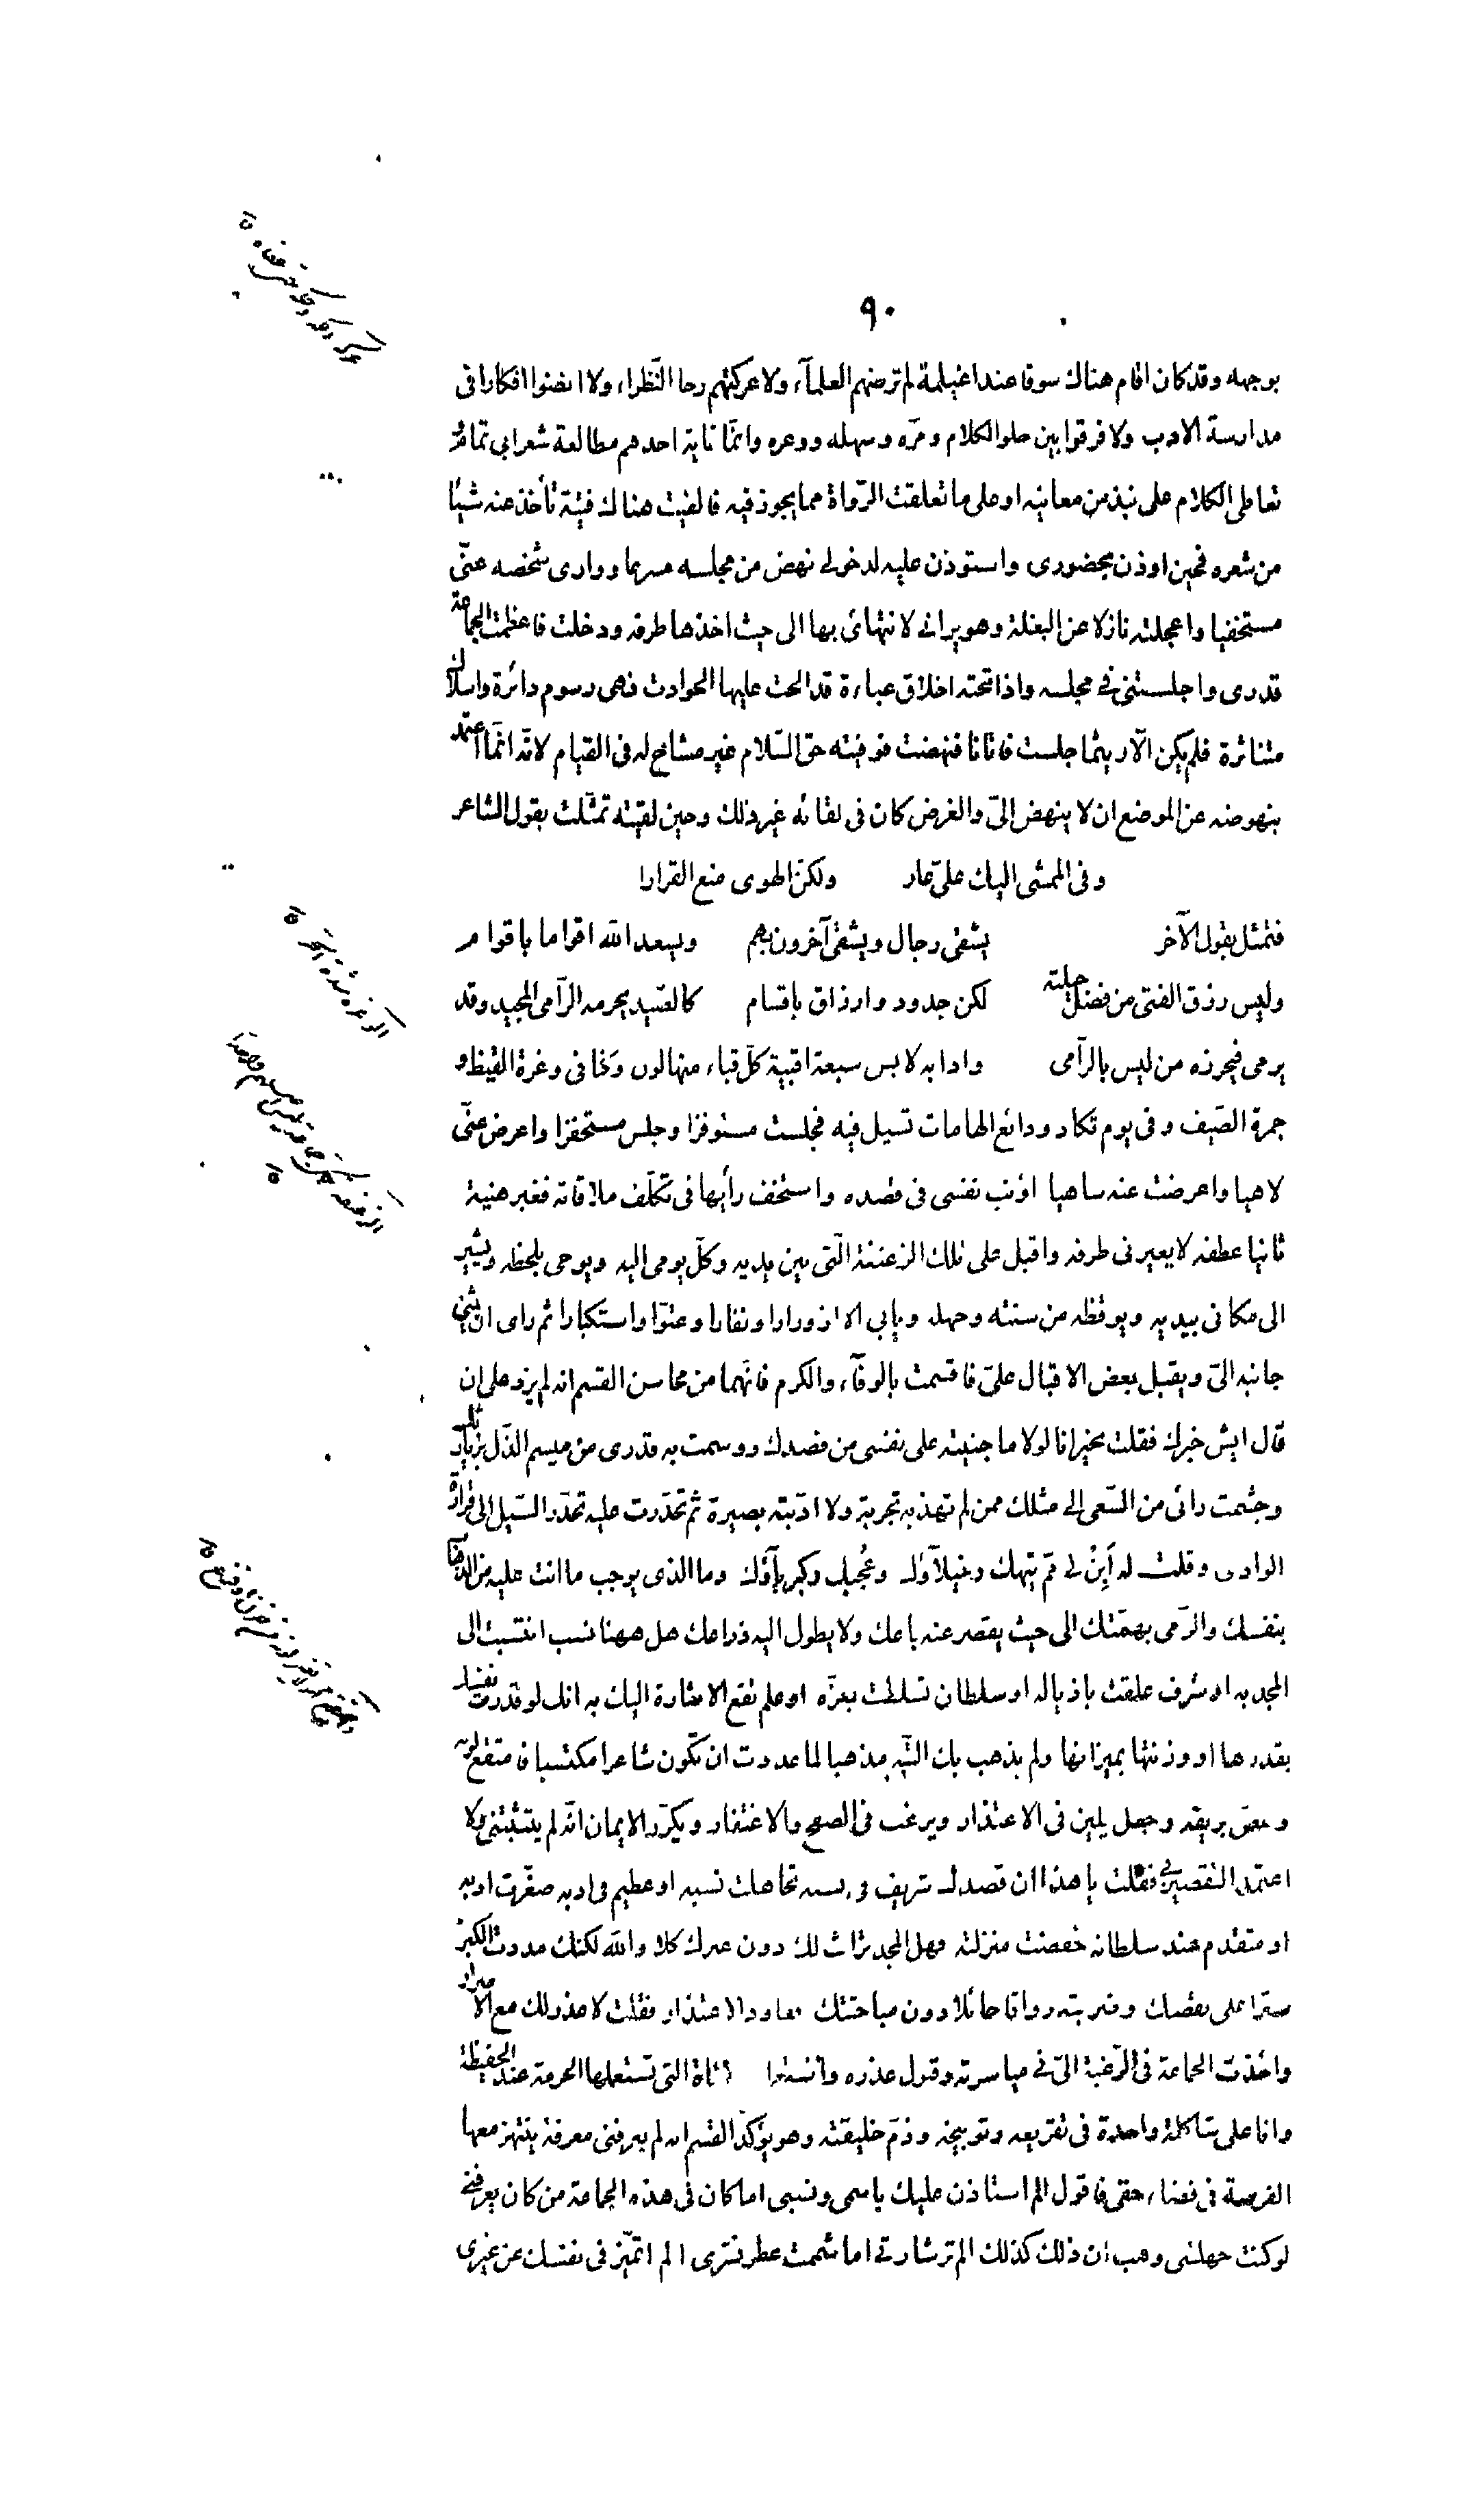 ٩٠
بوجهه وقد كان اقام هناك سوقا عند اغيلمة لم ترضهم العلمآء ولا عركتهم رحا النّظراء ولا انضوا افكارا فى
مدارسة الادب ولا فرقوا بين حلو الكلام ومرّه وسهله ووعره وانّما غاية احدهم مطالعة شعر ابى تمام و
تعاطى الكلام على نبذ من معانيه او على ما تعلقت الرّواة مما يجوز فيه فالفيت هناك فتية تأخذ عنه شيئا
من شعره فحين اوذن بحضورى واستوذن عليه لدخولى نهض من مجلسه مسرعا ووارى شخصه عنّى
مستخفيا واعجلته نازلا عن البغلة وهو يرانى لانتهائى بها الى حيث اخذها طرفه ودخلت فاعظمت الجماعة
قدرى واجلستنى فى مجلسه واذا تحته اخلاق عباءة قد الحت عليها الحوادث فهى رسوم دائرة واسلاك
متناثرة فلم يكن الّا ريثما جلست فاتانا فنهضت فوفيته حق السّلام غير مشاح له فى القيام لانّه انّما اعتمد
بنهوضه عن الموضع ان لا ينهض الىّ والغرض كان فى لقائه غير ذلك وحين لقيته تمثّلت بقول الشاعر
وفى الممشى اليك علىّ عار ولكنّ الهوى منع القرارا
فتمثل بقول الآخر يشقى رجال ويشقى آخرون بهم ويسعد الله اقواما باقوام
وليس رزق الفتى من فضل حيلته لكن جدود وارزاق باقسام كالصّيد يحرمه الرّامى المجيد وقد
يرمى فيحرزه من ليس بالرّامى واذا به لابس سبعة اقبية كلّ قباء منها لون وكنا فى وغرة القيظ و
جمرة الصّيف وفى يوم تكاد ودائع الهامات تسيل فيه فجلست مستوفزا وجلس مستحفزا واعرض عنّى
لاهيا واعرضت عنه ساهيا اؤنب نفسى فى قصده واستخف رأيها فى تكلّف ملاقاته فغبر هنية
ثانيا عطفه لا يعيرنى طرفه واقبل على تلك الزعنفة الّتى بين يديه وكلّ يومى اليه ويوحى بلحظه ويشير
الى مكانى بيديه ويوقظه من سنته وجهله ويابى الا ازورارا ونفارا وعتوّا واستكبارا ثم راى ان يثنى
جانبه الىّ ويقبل بعض الاقبال علىّ فاقسمت بالوفآء والكرم فانّهما من محاسن القسم انه لم يزد على ان
قال ايش خبرك فقلت بخير انا لولا ما جنيته على نفسى من قصدك ووسمت به قدرى من ميسم الذّل بزيارتك
وجشمت رائى من السّعى الى مثلك ممن لم تهذبه تجربة ولا ادّبته بصيرة ثم تحدّرت عليه تحدّر السّيل الى قرارة
الوادى وقلت له أَبِنْ لى ممّ تيهك وخيلآؤك وعُجبك وكبريآؤك وما الذى يوجب ما انت عليه من الذهاب
بنفسك والرّمى بهمّتك الى حيث يقصر عنه باعك ولا يطول اليه ذراعك هل ههنا نسب انتسبت الى
المجد به او شرف علقت باذياله او سلطان تسلطت بعزّه او علم تقع الاشارة اليك به انك لو قدّرت نفسك
بقدرها او وزنتها بميزانها ولم يذهب بك التّيه مذهبا لما عدوت ان تكون شاعرا مكتسبا فامتقع لونه
وغصّ بريقه وجعل يلين فى الاعتذار ويرغب فى الصفح والاغتفار ويكرّر الايمان انّه لم يتثبتنى ولا
اعتمد التقصير بى فقلت يا هذا ان قصدك شريف فى نسبه تجاهلت نسبه او عظيم فى ادبه صغّرت ادبه
او متقدم عند سلطانه خفضت منزلته فهل المجد تراث لك دون غيرك كلا والله لكنك مددت الكبر
سترا على نقصك وضربته رواقا حائلا دون مباحثتك فعاود الاعتذار فقلت لا عذر لك مع الاصرار
واخذت الجماعة فى الرّغبة الىّ فى مياسرته وقبول عذره الاناة التى تستعملها الحرمة عند الحفيظة
وانا على شاكلة واحدة فى تقريعه وتوبيخه وذمّ خليقته وهو يؤكّد القسم انه لم يعرفنى معرفة ينتهز معها
الفرصة فى قضاء حقى فاقول الم استاذن عليك باسمى ونسبى اما كان فى هذه الجماعة من كان يعرفنى
لو كنت جهلتنى وهب ان ذلك كذلك الم تر شارتى اما شممت عطر نشرى الم اتميّز فى نفسك عن غيرى